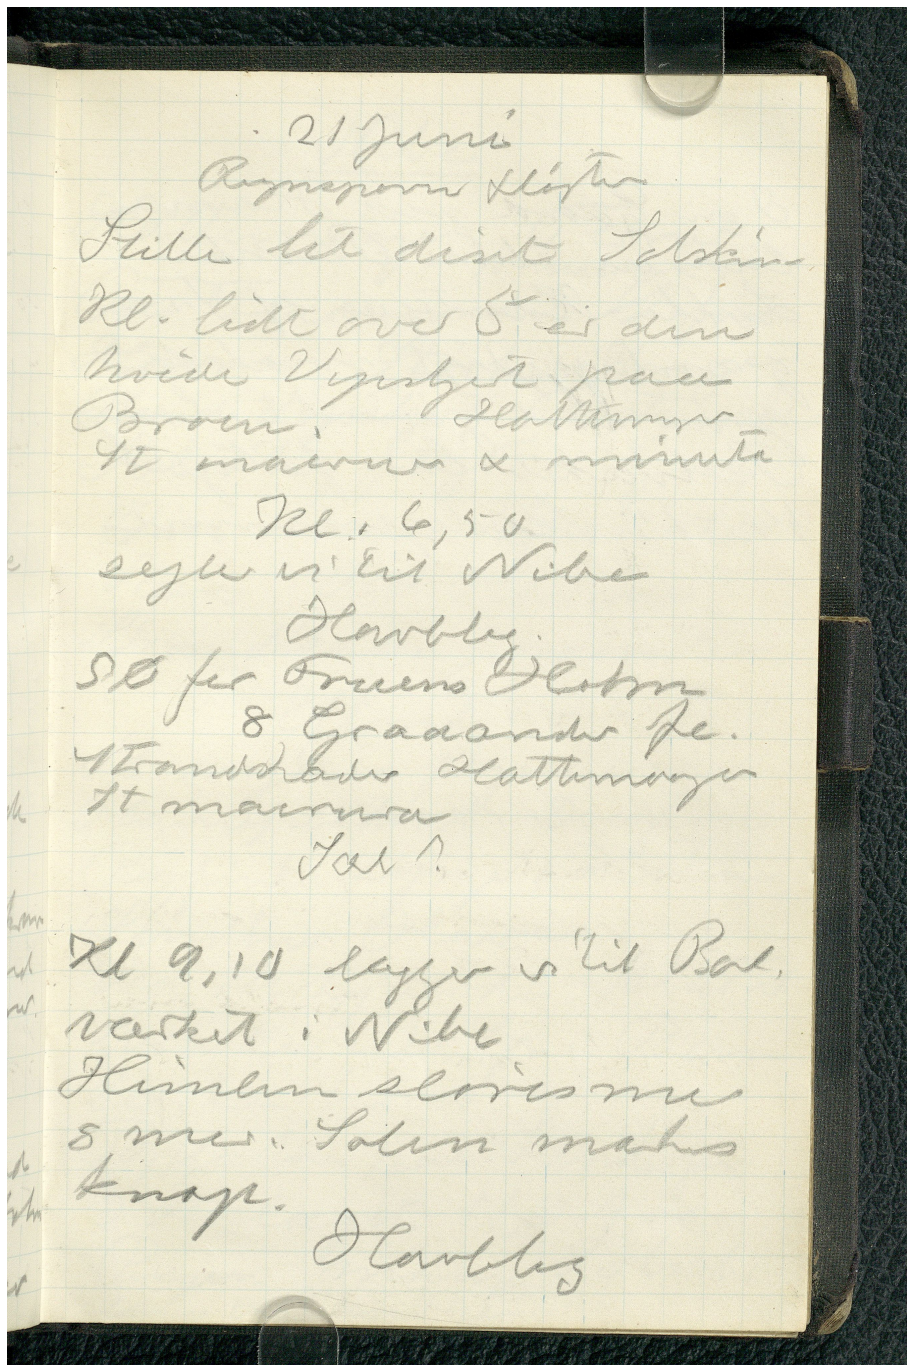 21 Juni
Regnsporv fløjter
Stille let diset Solskin
Kl. lidt over 5 er den
hvide Vipstjert paa
Broen. Hættemaager
St macrura & minuta
Kl. 6,50
sejler vi til Nibe
Havblig.
SØ for Fruens Holm
8 Graaænder fl.
Strandskader Hættemaager
St macrura
Sæl?
Kl 9,10 lægger vi til Bol,
værket i Nibe
Himlen sløres mer
& mer. Solen mærkes
knap.
Havblig